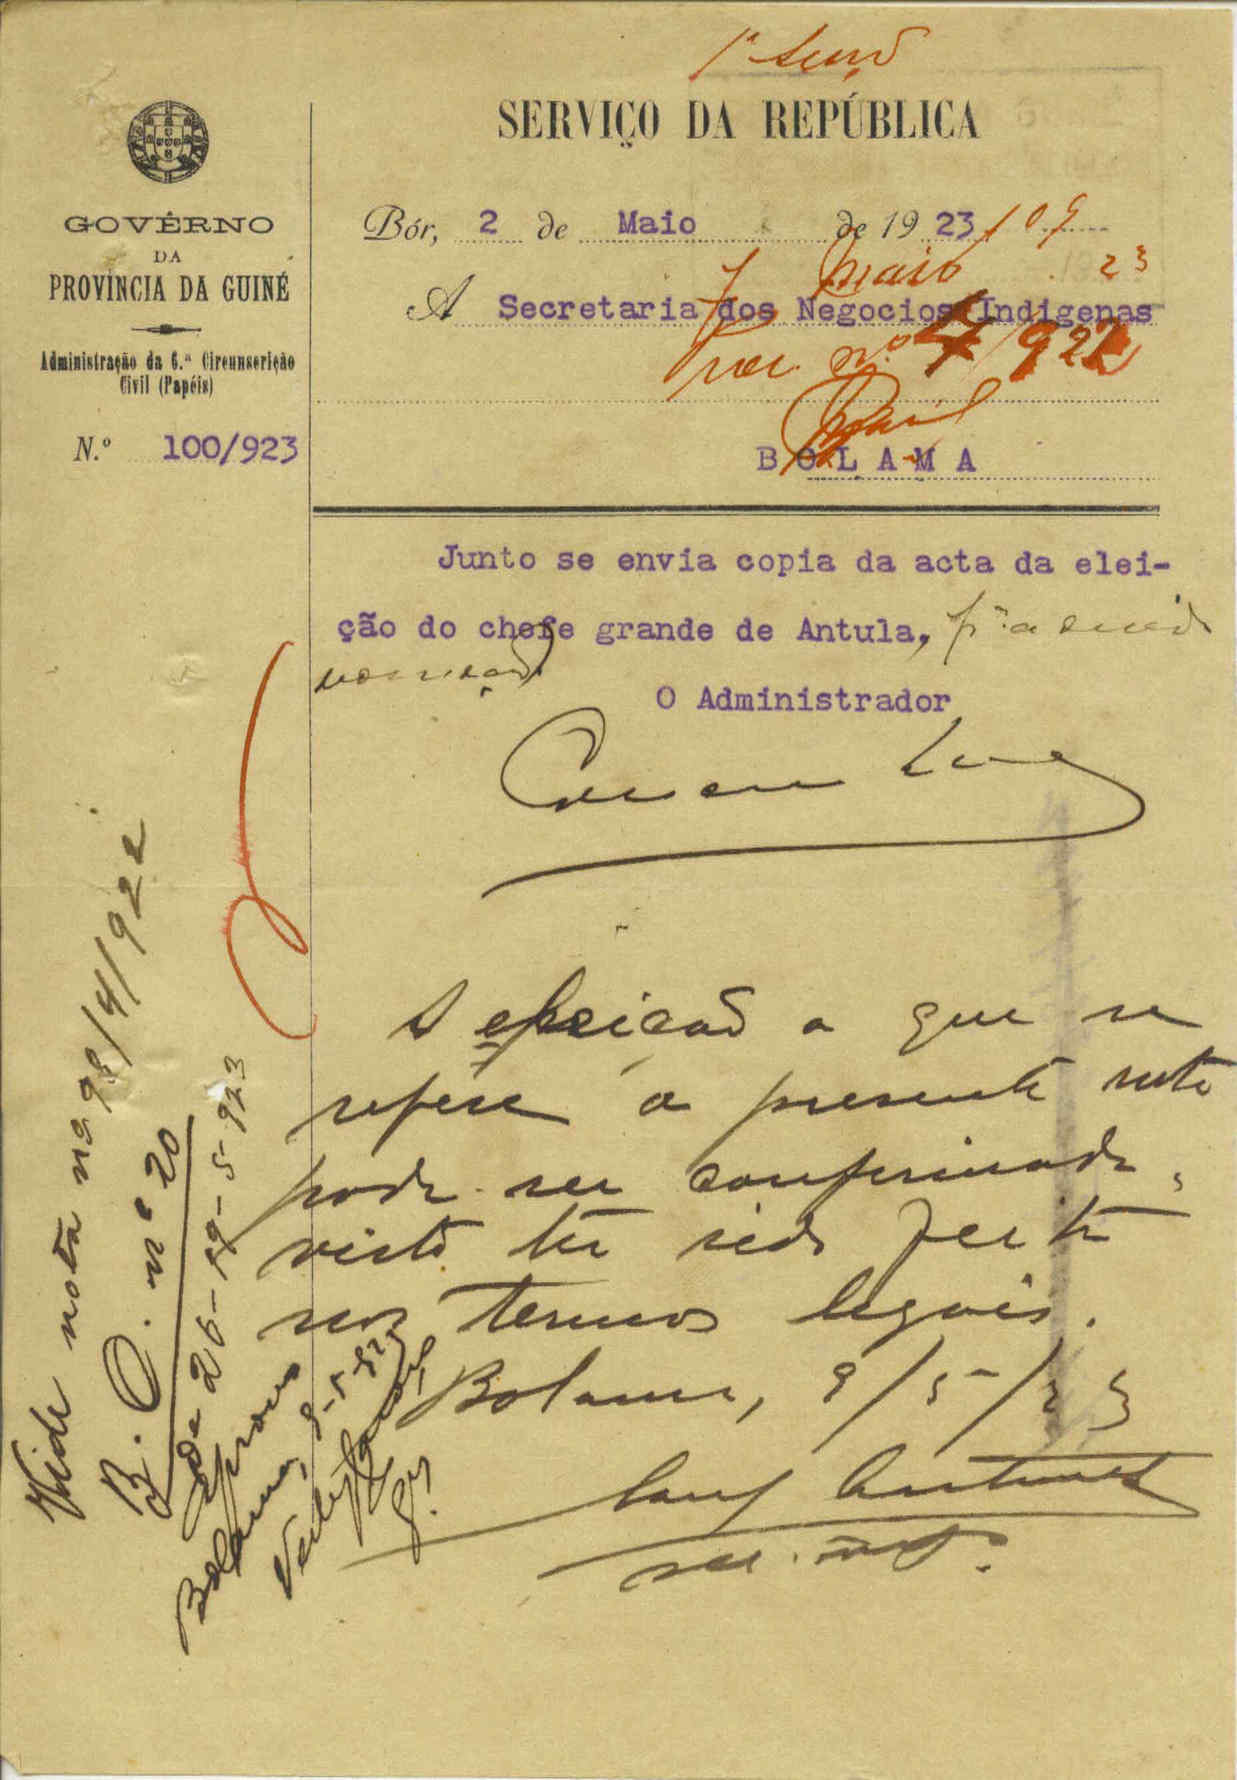 SERVIÇO DA REPÚBLICA
GOVÊRNO
DA
PROVÍNCIA DA GUINÉ
Administração da 6.ª Circunscrição
Civil (Papéis)
N.º 100/923
Bór, 2 de Maio de 1923
109
7 maio 23
A Secretaria dos Negocios Indigenas
Proc. n.º 4/922
BOLAMA
Junto se envia copia da acta da elei-
ção do chefe grande de Antula,
O Administrador
A eleição a que se
refere a presente nota
pode ser confirmada,
visto ter sido feita
nos termos legais.
Bolama, 9/5/23
Antunes
Vide nota nº 98/4/922
B. O. nº 20
de 19-5-923
Aprovo
Bolama, 9-5-923